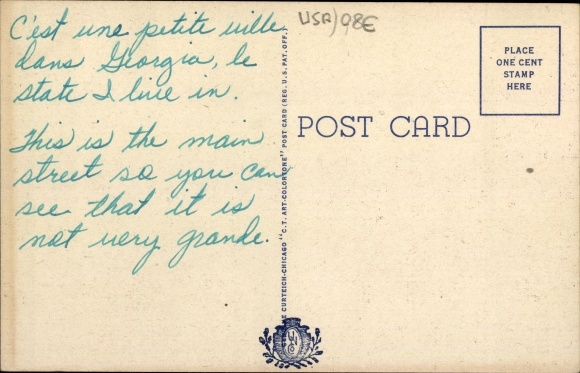 C'est une petite ville
dans Georgia, le
state I live in.
This is the main
street so you can
see that it is
not very grande.
USA) 98E
PLACE
ONE CENT
STAMP
HERE
POST CARD
CURTEICH-CHICAGO "C.T. ART-COLORTONE" POST CARD (REG. U.S. PAT. OFF.)